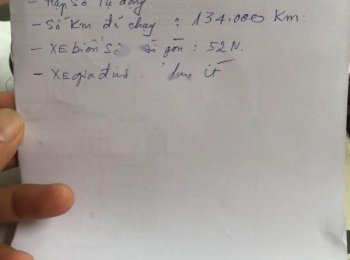 - Hộp Số Tự động
- Số Km đã chạy : 134.000 Km.
- XE biển Số gòn : 52N.
- XE gia đình dụng ít